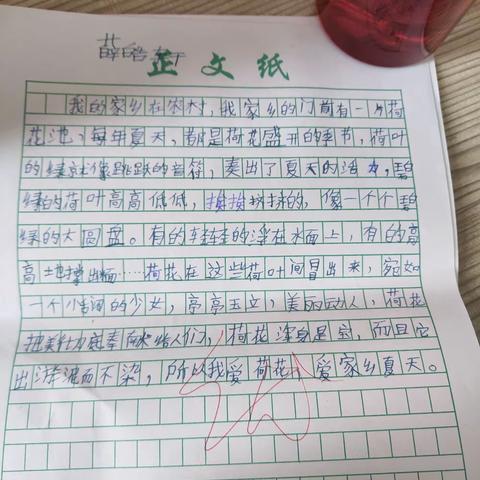 薛皓
正文纸
我的家乡在农村，我家乡的门前有一片荷
花池，每年夏天，都是荷花盛开的季节，荷叶
的绿就像跳跃的音符，奏出了夏天的活力，碧
绿的荷叶高高低低，挨挨挤挤的，像一个个碧
绿的大圆盘。有的轻轻的浮在水面上，有的高
高出水面……荷花在这些荷叶间冒出来，宛如
一个个的少女，亭亭玉立，美丽动人，荷花
把美丽奉献给人们，荷花浑身是宝，而且它
出淤泥而不染，所以我爱荷花，爱家乡夏天。